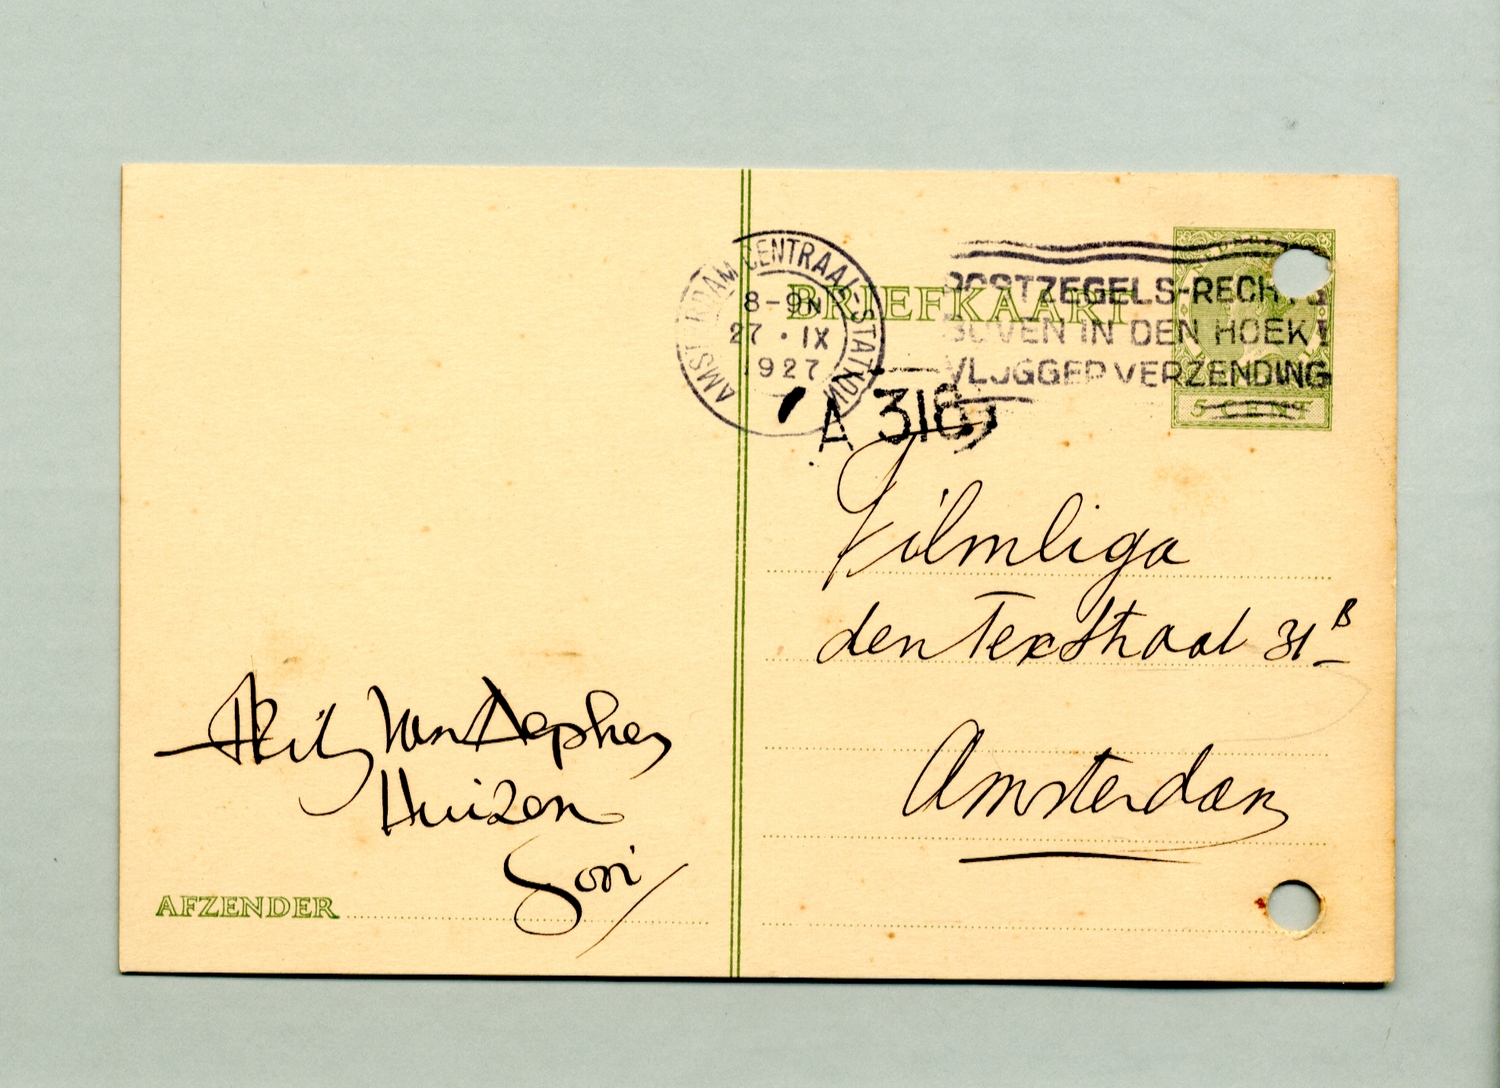 AMSTERDAM CENTRAAL-STATION
8-9N
27 · IX
1927
BRIEFKAART
POSTZEGELS-RECHTS
BOVEN IN DEN HOEK!
VLUGGER VERZENDING
5 CENT
A 316
Filmliga
den Texstraat 31 B
Amsterdam
van
Huizen
AFZENDER